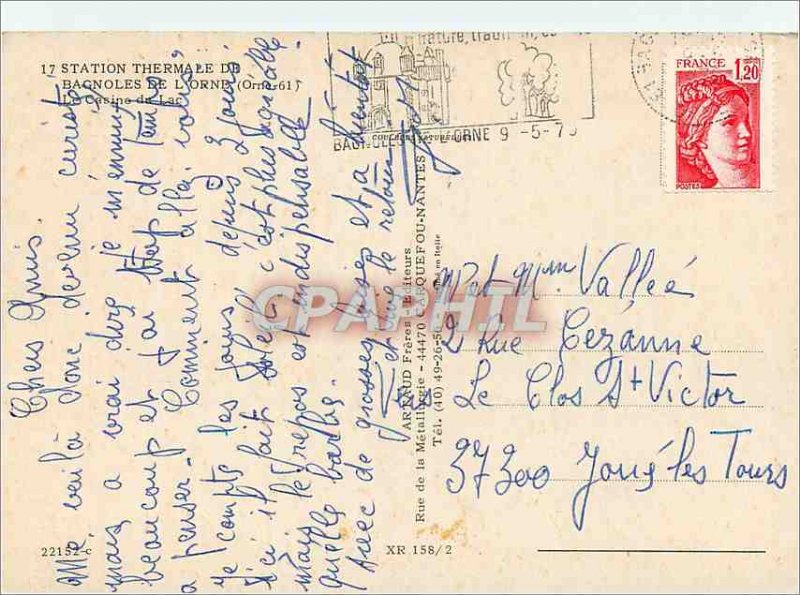 17 STATION THERMALE DE
BAGNOLES DE L'ORNE (Orne-61)
Le Casino du Lac
BAGNOLES DE L'ORNE 9 -5-79
FRANCE 1,20
POSTES
Chers Amis.
Me voilà donc devenu curiste
mais a vrai dire je m'ennuie
beaucoup et j'ai trop de temps
a penser. Comment allez vous,
je compte les jours depuis 2 jours
ici il fait soleil c'est plus agréable
mais le repos est indispensable
quelle barbe.
Avec de grosses bises et a bientôt
le retour
ARTAUD Frères - Editeurs
Rue de la Métallurgie - 44470 CARQUEFOU-NANTES
Tél. (40) 49-26-50 - Imprimé en Italie
CPAPHIL
M et Mme Vallée
2 Rue Cézanne
Le Clos St Victor
37300 Joué les Tours
22152-c
XR 158/2